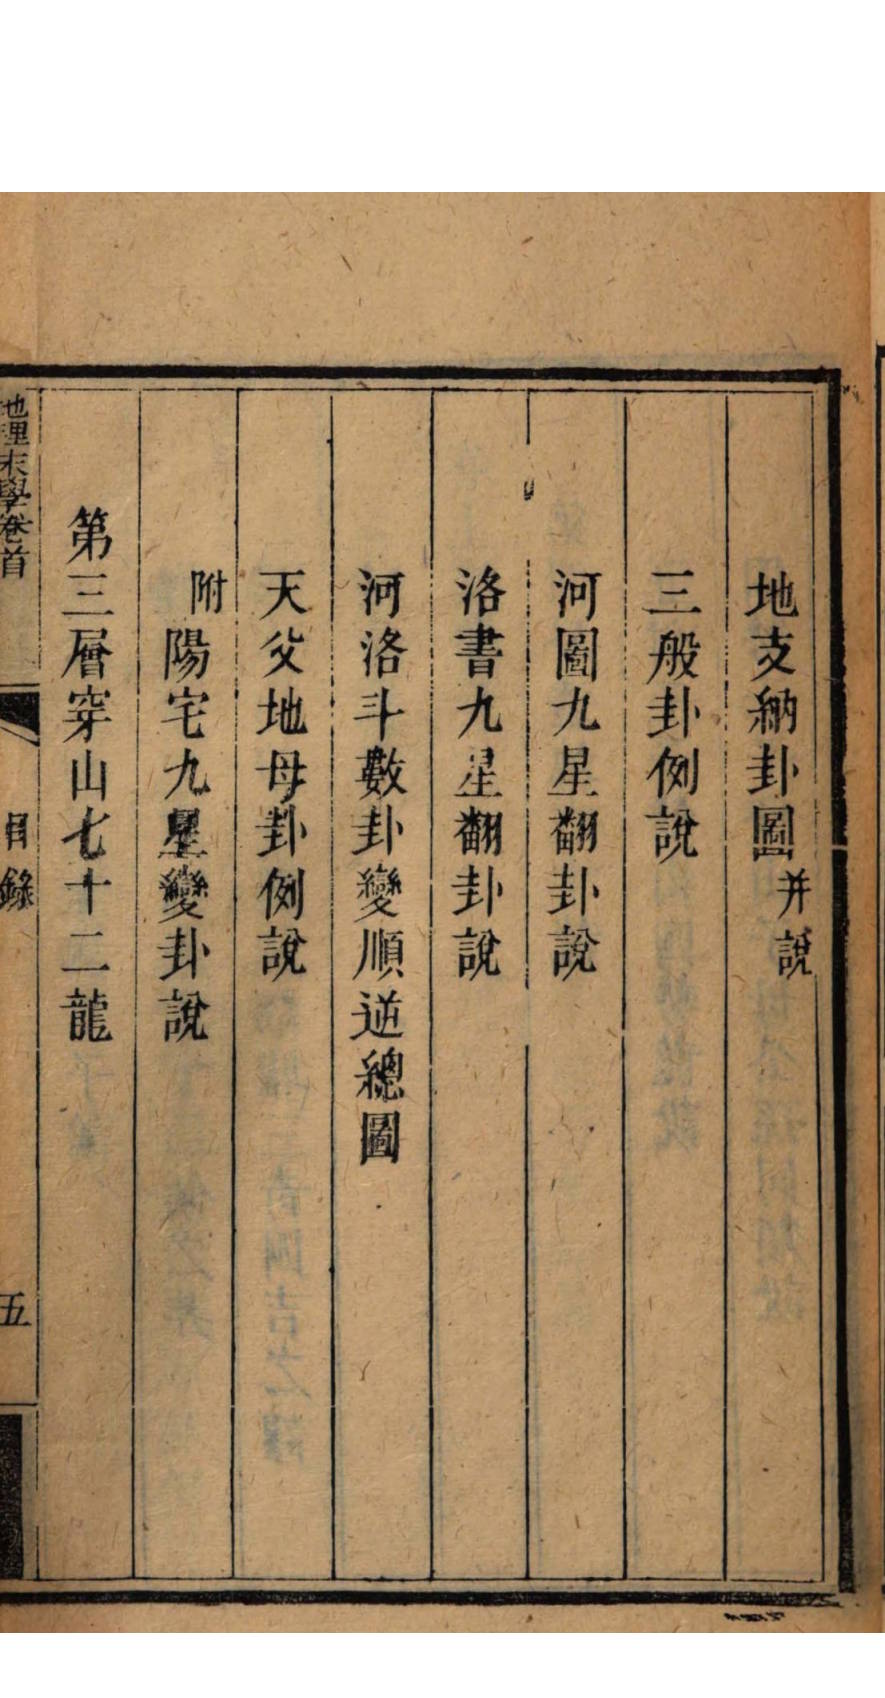 地支納卦圖并說
三般卦例說
河圖九星翻卦說
洛書九星翻卦說
河洛斗數卦變順逆總圖
天父地母卦例說
附陽宅九星變卦說
第三層穿山七十二龍
地理末學卷首
目錄
五